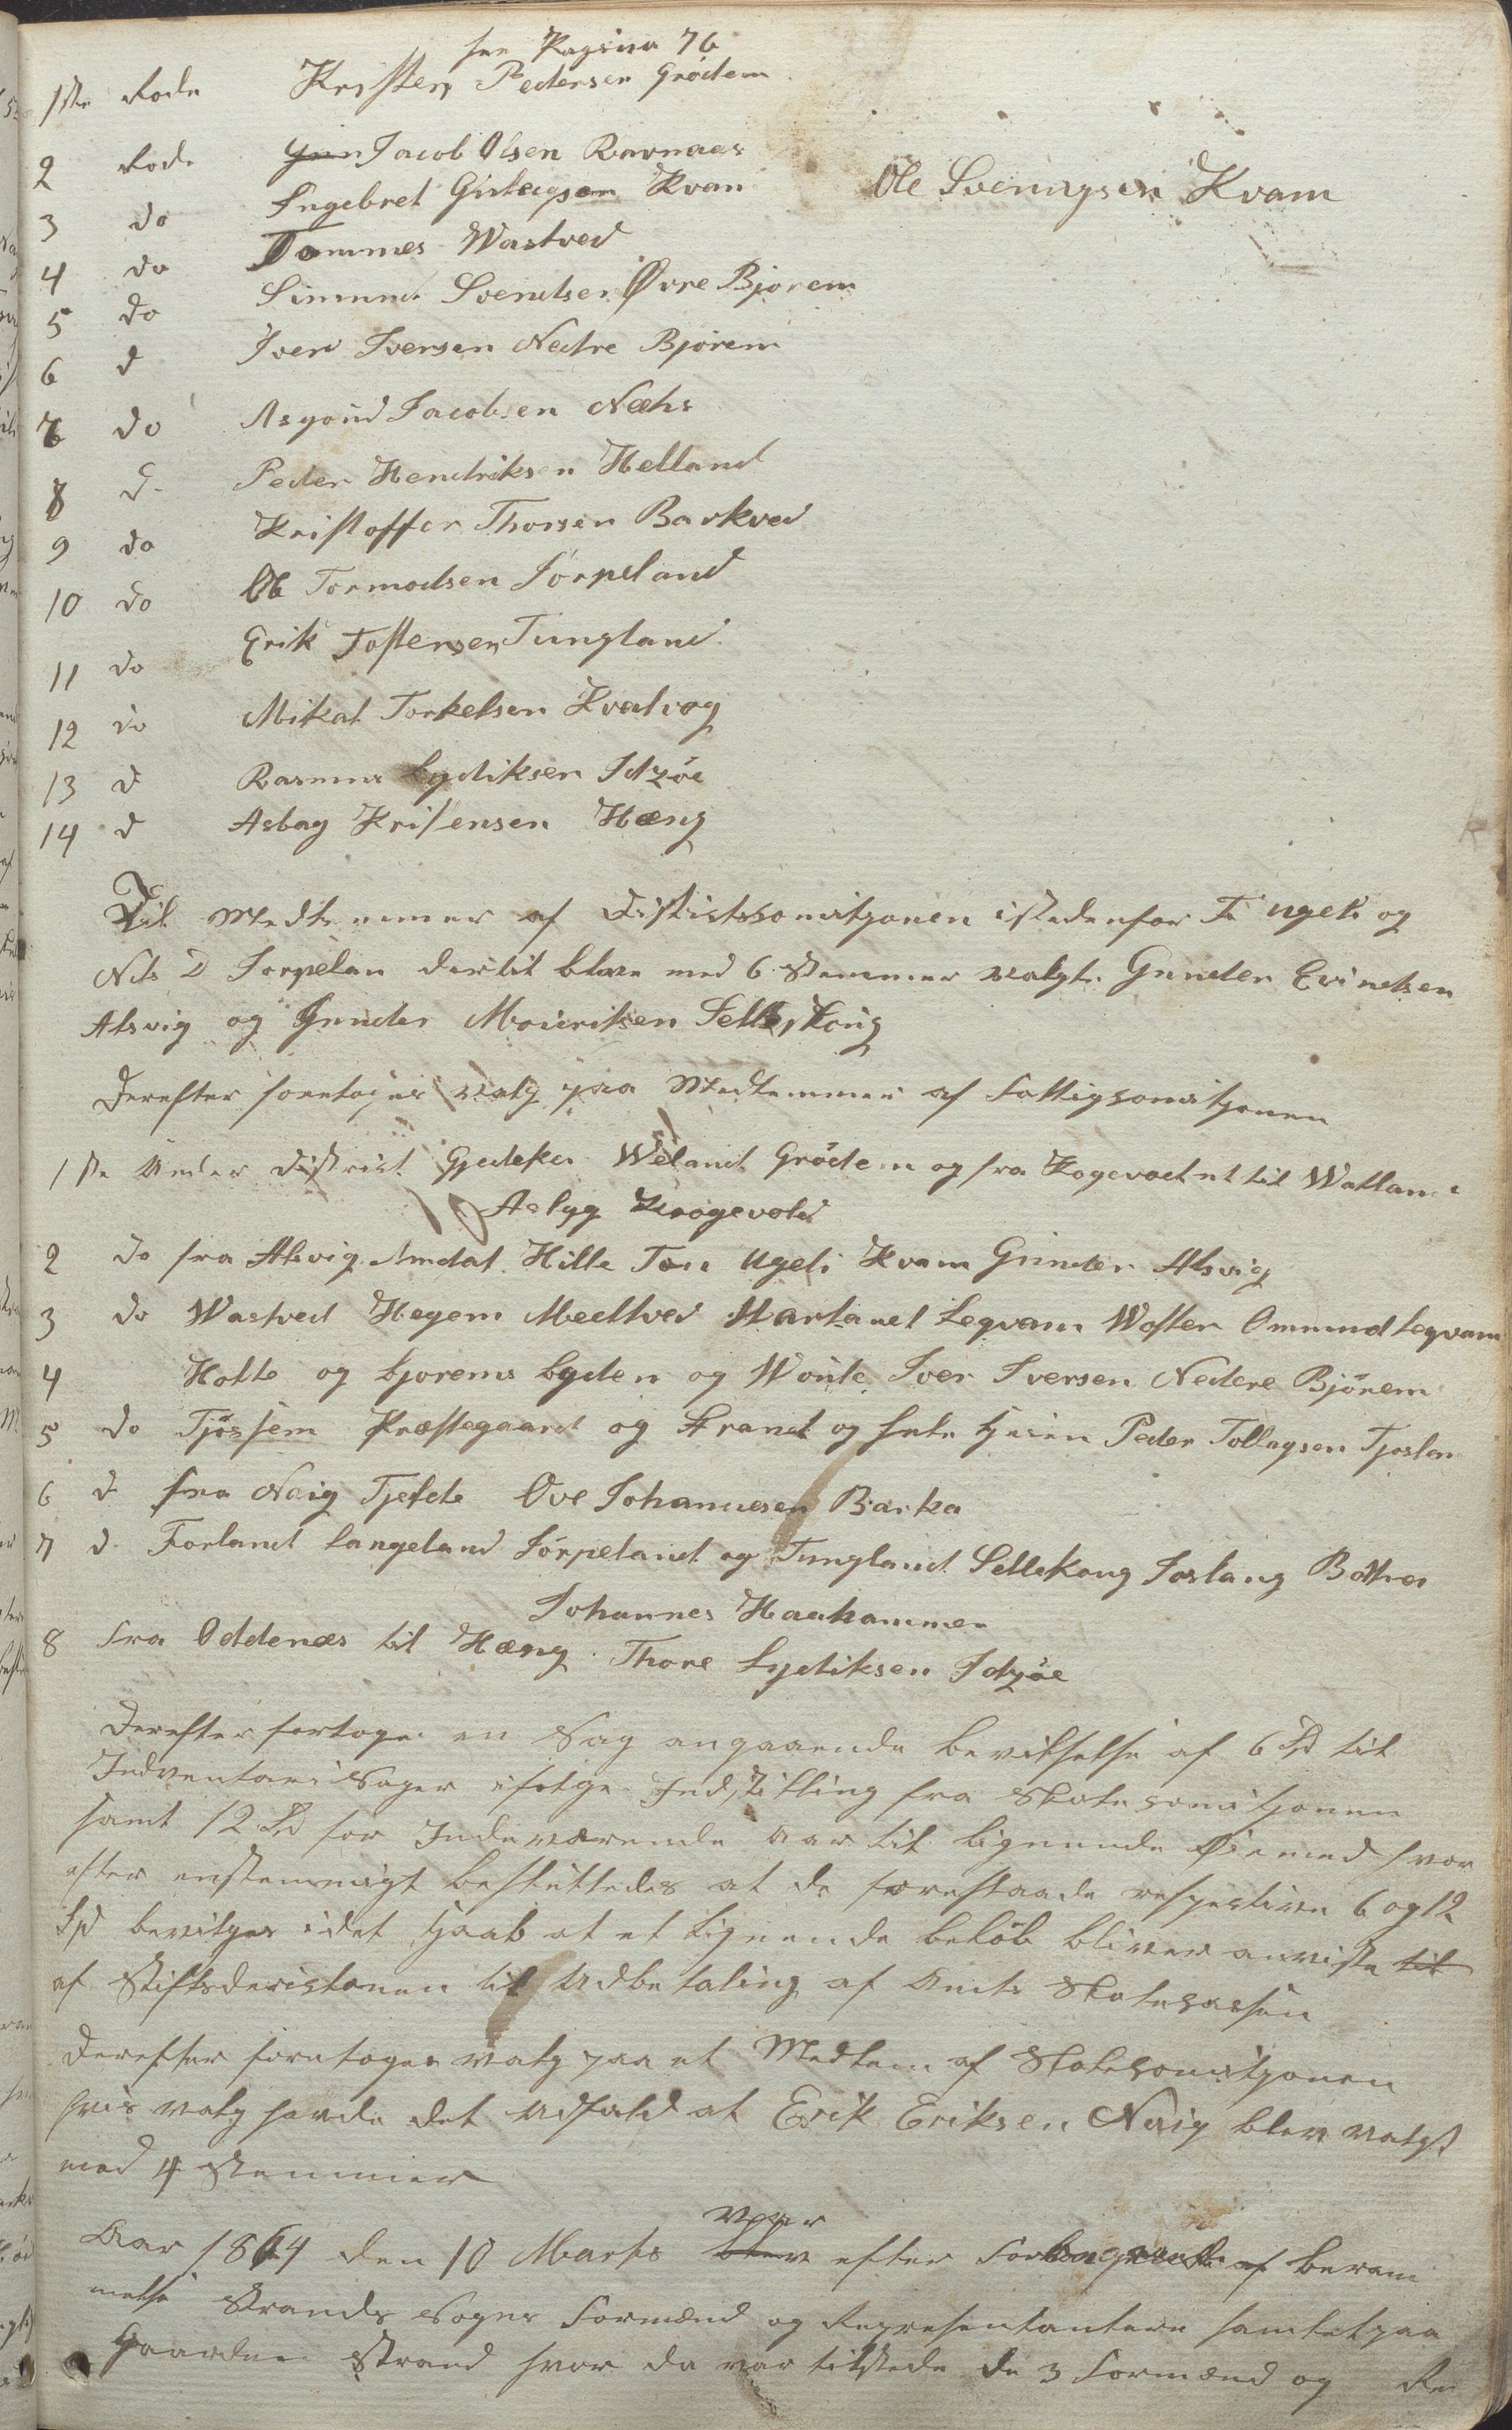 see Pagina 76
1ste Rode Kristen Pedersen Grødem
2 Rode Jacob Olsen Ravnaas
3 do Engebret Gutormsen Kvam Ole Sveinugsen Kvam
4 do Tommes Wastved
5 do Simund Svendsen Øvre Bjorem
6 d Iver Iversen Nedre Bjørem
7 do Asgoud Jacobsen Næhs
8 d Peder Hendriksen Helland
9 do Kristoffer Thorsen Barkved
10 do Ole Tormodsen Jørpeland
11 do Erik Tostensen Tungland
12 do Mikal Torkelsen Kvalvog
13 d Rasmus Lydiksen Idzøe
14 d Asbøg Kristensen Hæng
Til Medlemmer af Distriktskomitjonen istedenfor T Ugeli og
Nils D Jorpelan dertil bleve med 6 Stemmer valgt Gunder Evindsen
Alsvig og Gunder Mouriksen Selleskoug
Derefter foretoges valg paa Medlemmer af Fattigkomitjonen
1ste Under District Gjedeka Weland Grødem og fra Kogevodnet til Watland
Aslyg Krogevold
2 do fra Alsvig Amdal Hille Tou Ugeli Kvam Gunder Alsvig
3 do Wastved Hegem Meeltved Hartanel Legvam Woster Ommund Legvam
4 Holte og bjorems bygden og Woule Iver Iversen Nedere Bjørem
5 do Tjøssem Præstegaard og Strand og Peder Tollagsen Tjoslem
6 d fra Naig Tjelde Ove Johannesen Barka
7 d Forland Langeland Jørpeland og Tungland Selleskoug Joslang Botnes
Johannes Haahammer
8 Fra Oddenæs til Hæng Thore Lydiksen Idzøe
Derefter fortoges en Sag angaaende bevilgelse af 6 Spd til
Indventari Sager ifølge Indstilling fra Skolekomitjonen
samt 12 Spd for Indeværende Aar til lignende Øiemed hvor
efter enstemmigt besluttedes at de forestaaende respective 6 og 12
Spd bevilges idet Haab at et lignende beløb bliver anviste til
af Stiftsderictonen til Udbetaling af Amts Skolekassen
Derefter foretoges valg paa et Medlem af Skolekomitjonen
hvis valg havde det Udfald at Erik Eriksen Naig blev valgt
med 4 Stemmer
Aar 1864 den 10 Marts blev var efter Forlangende af beram
melse Strands Sogns Formænd og Repræsentantere samlet paa
Gaarden Strand hvor da var tilstede de 3 Formænd og Re